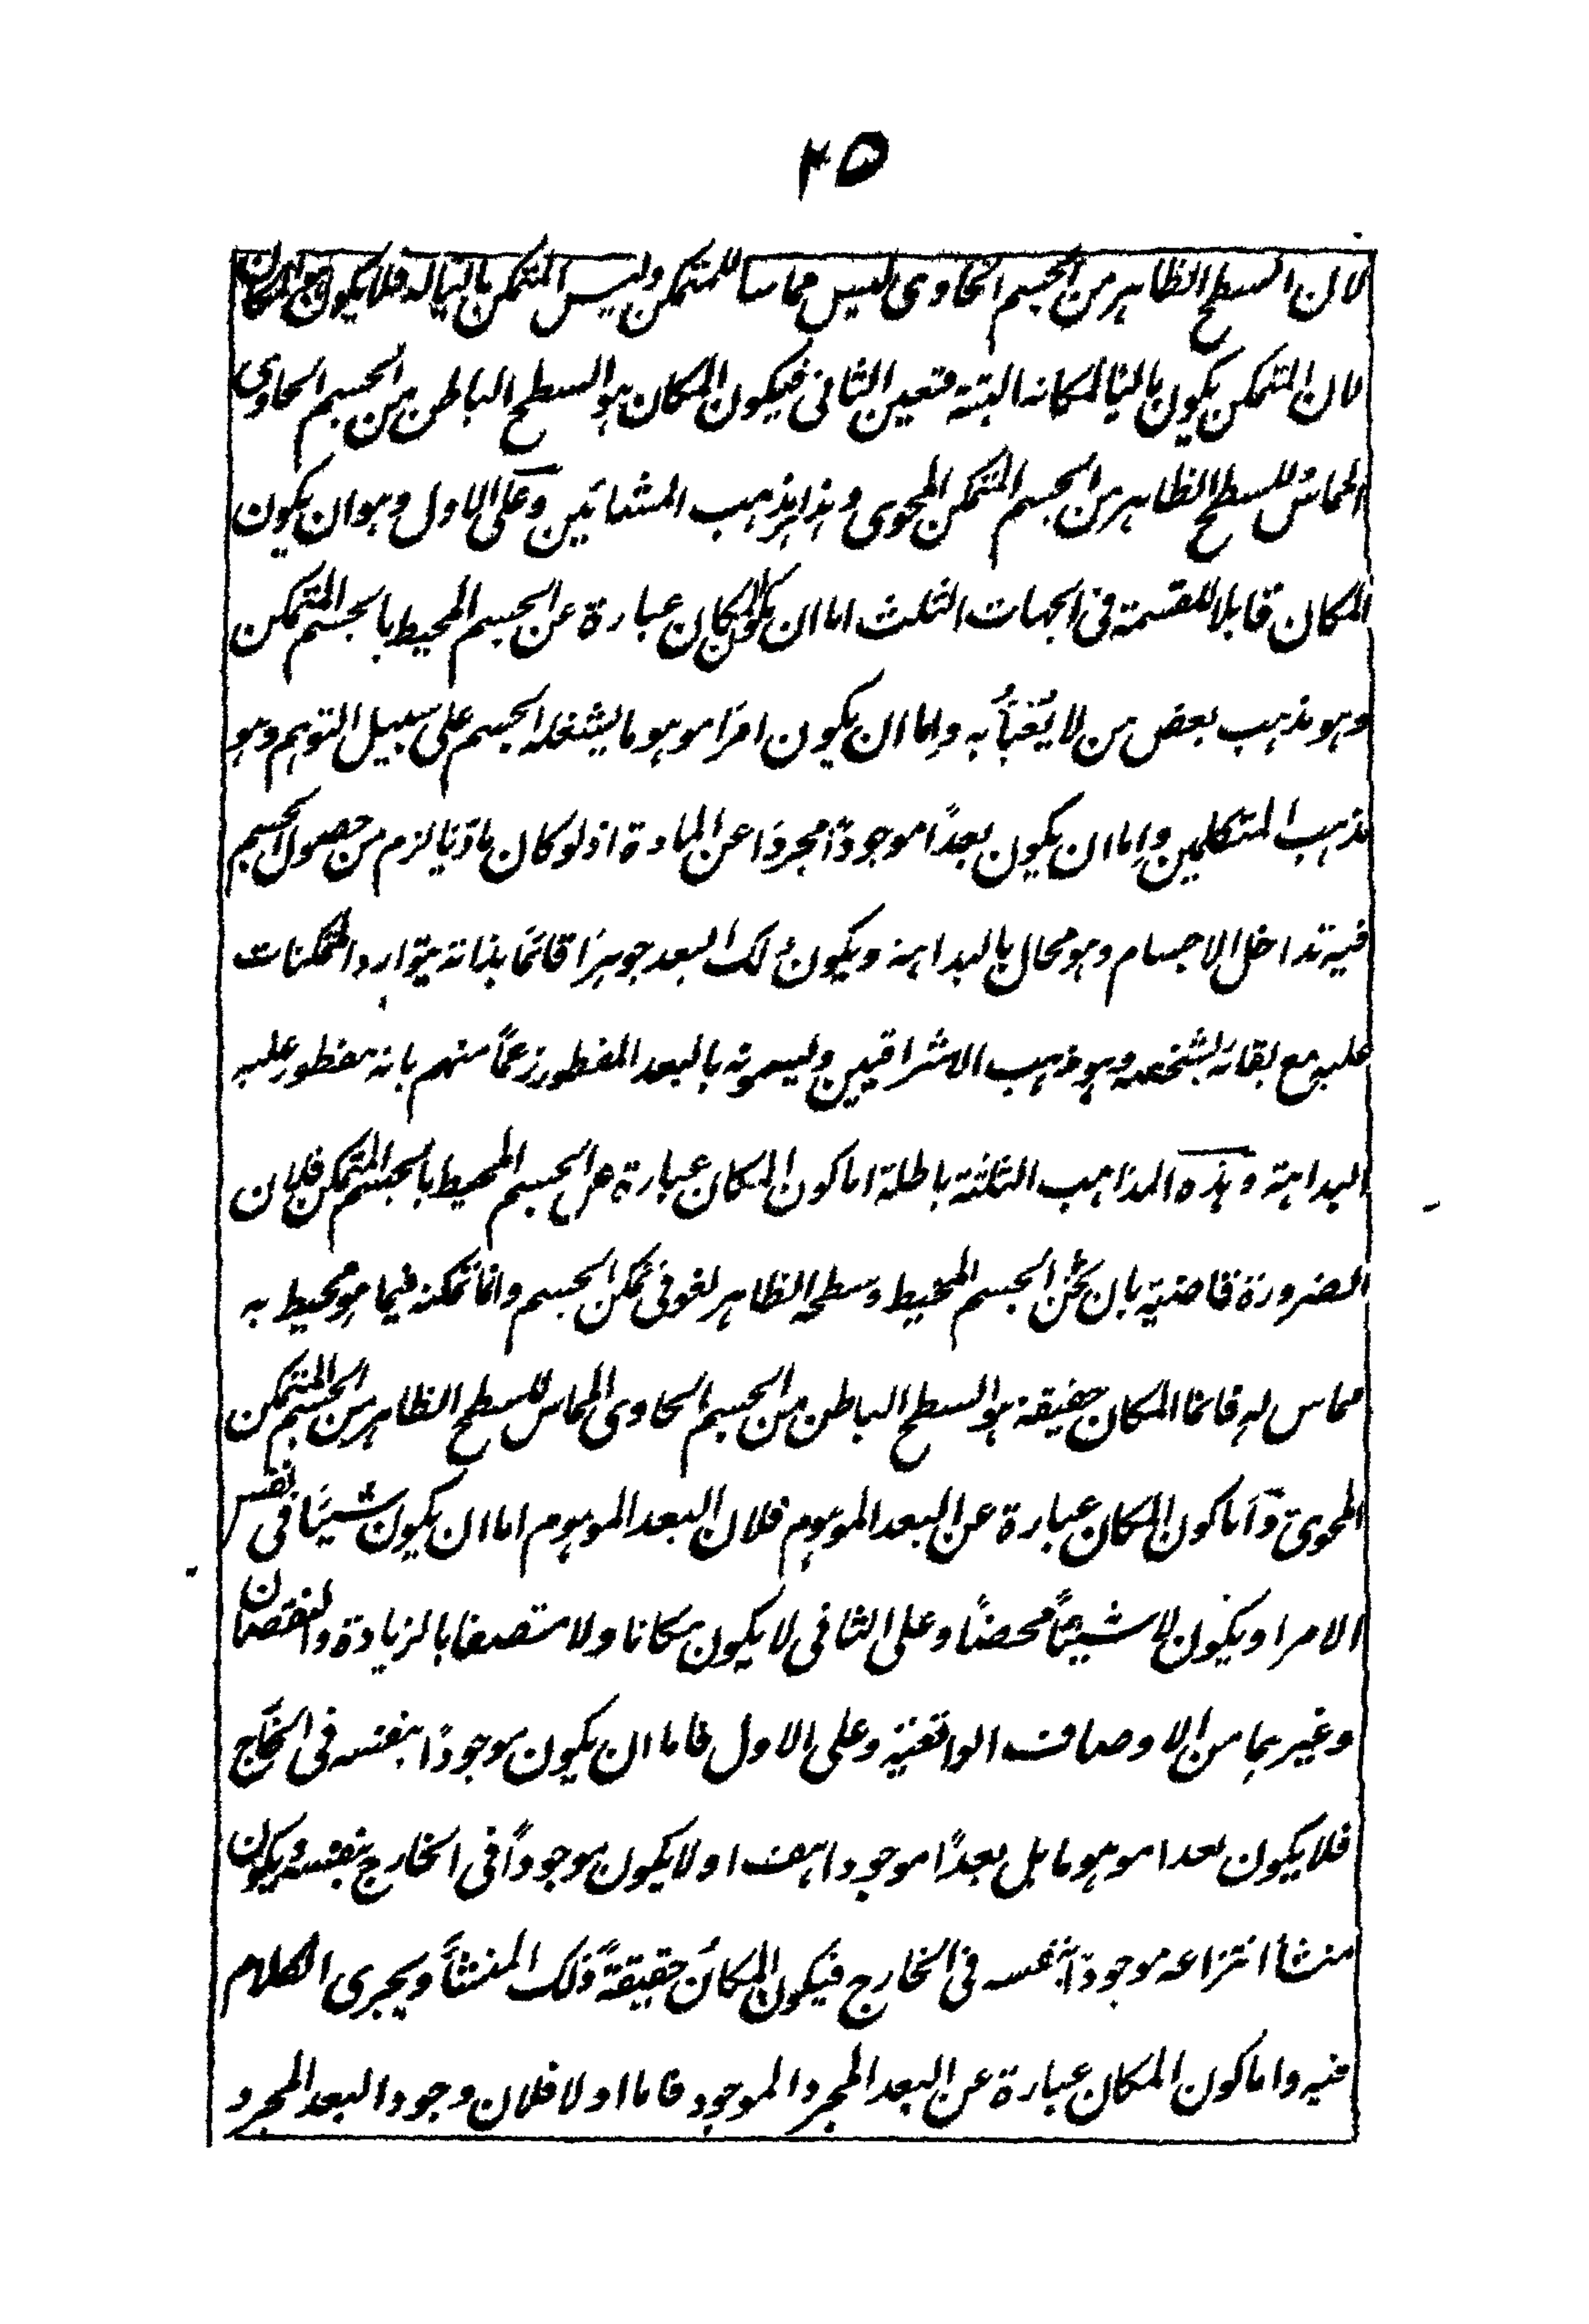 ٢٥
لان السطح الظاهر من الجسم الحاوى ليس مماسا للمتمكن وليس المتمكن ماليا له فلا يكون هو المكان
لان المتمكن يكون ماليا لمكانه البتة فتعين الثانى فيكون المكان هو السطح الباطن من الجسم الحاوى
المماس للسطح الظاهر من الجسم المتمكن المحوى وهذا مذهب المشائين وعلى الاول وهو ان يكون
المكان قابلا للقسمة فى الجهات الثلث اما ان يكون المكان عبارة عن الجسم المحيط بالجسم المتمكن
وهو مذهب بعض من لا يُعْبَأُ به واما ان يكون امرًا موهوما يشغله الجسم على سبيل التوهم وهو
مذهب المتكلمين واما ان يكون بعدًا موجودًا مجردًا عن المادة اذ لو كان ماديًا لزم من حصول الجسم
فيه تداخل الاجسام وهو محال بالبداهة ويكون ذلك البعد جوهرًا قائمًا بذاته يتوارد المتمكنات
عليه مع بقائه بشخصه وهو مذهب الاشراقيين ويسمونه بالبعد المفطور زعمًا منهم بانه مفطور عليه
البداهة وهذه المذاهب الثلثة باطلة اما كون المكان عبارة عن الجسم المحيط بالجسم المتمكن فلان
الضرورة قاضية بان ثخن الجسم المحيط وسطحه الظاهر لغو فى تمكن الجسم وانما تمكنه فيما هو محيط به
مماس له فانما المكان حقيقة هو السطح الباطن من الجسم الحاوى المماس للسطح الظاهر من الجسم المتمكن
المحوى واما كون المكان عبارة عن البعد الموهوم فلان البعد الموهوم اما ان يكون شيئًا فى نفس
الامر او يكون لا شيئًا محضًا وعلى الثانى لا يكون مكانا ولا متصفا بالزيادة والنقصان
وغيرهما من الاوصاف الواقعية وعلى الاول فاما ان يكون موجودًا بنفسه فى الخارج
فلا يكون بعدا موهوما بل بعدًا موجودا هف او لا يكون موجودًا فى الخارج بنفسه ويكون
منشأ انتزاعه موجودًا بنفسه فى الخارج فيكون المكانُ حقيقةً ذلك المنشأَ ويجرى الكلام
فيه واما كون المكان عبارة عن البعد المجرد الموجود فاما اولا فلان وجود البعد المجرد